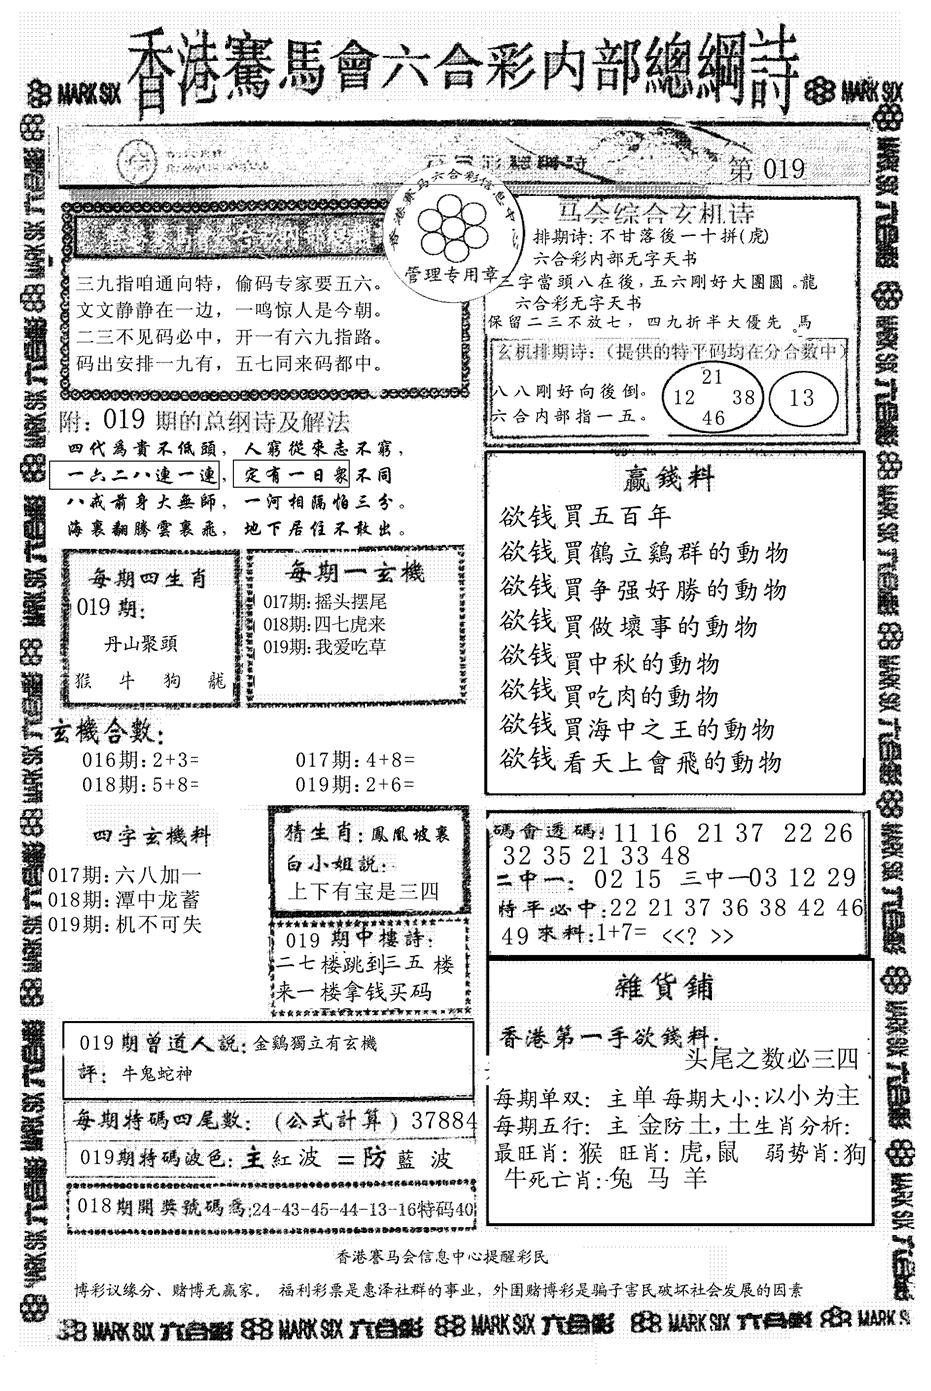 香港賽馬會六合彩内部總綱詩
MARK SIX
MARK SIX
第 019
香港赛马六合彩信息中心
管理专用章
三九指咱通向特，偷码专家要五六。
文文静静在一边，一鸣惊人是今朝。
二三不见码必中，开一有六九指路。
码出安排一九有，五七同来码都中。
马会综合玄机诗
排期诗: 不甘落後一十拼(虎)
六合彩内部无字天书
三字當頭八在後，五六剛好大團圓 。龍
六合彩无字天书
保留二三不放七，四九折半大優先 。馬
玄机排期诗:（提供的特平码均在分合数中）
八八剛好向後倒。
六合内部指一五。
21
12 38
46
13
附: 019 期的总纲诗及解法
四代為貴不低頭，人窮從來志不窮，
一六二八連一連，定有一日衆不同
八戒前身大無師，一河相隔怕三分。
海裏翻騰雲裏飛，地下居住不敢出。
每期四生肖
019 期:
丹山聚頭
猴 牛 狗 龍
每期一玄機
017期:摇头摆尾
018期:四七虎来
019期:我爱吃草
赢錢料
欲钱買五百年
欲钱買鶴立鷄群的動物
欲钱買争强好勝的動物
欲钱買做壞事的動物
欲钱買中秋的動物
欲钱買吃肉的動物
欲钱買海中之王的動物
欲钱看天上會飛的動物
玄機合數:
016期:2+3= 017期:4+8=
018期:5+8= 019期:2+6=
四字玄機料
017期:六八加一
018期:潭中龙蓄
019期:机不可失
猜生肖: 鳳凰坡裏
白小姐説:
上下有宝是三四
019 期中樓詩:
二七楼跳到三五 楼
来一楼拿钱买码
碼會透碼: 11 16 21 37 22 26
32 35 21 33 48
二中一: 02 15 三中一03 12 29
特平必中:22 21 37 36 38 42 46
49 來料:1+7= <<? >>
雜貨鋪
香港第一手欲錢料:
头尾之数必三四
每期单双: 主单 每期大小:以小为主
每期五行: 主 金防土,土生肖分析:
最旺肖: 猴 旺肖: 虎,鼠 弱势肖:狗
牛死亡肖:兔 马 羊
019期曾道人説:金鷄獨立有玄機
評: 牛鬼蛇神
每期特碼四尾數:（公式計算）37884
019期特碼波色:主紅波 =防藍 波
018期開獎號碼爲:24-43-45-44-13-16特码40
香港赛马会信息中心提醒彩民
博彩议缘分、赌博无赢家。 福利彩票是惠泽社群的事业，外围赌博彩是骗子害民破坏社会发展的因素
MARK SIX 六合彩 MARK SIX 六合彩 MARK SIX 六合彩 MARK SIX 六合彩 MARK SIX